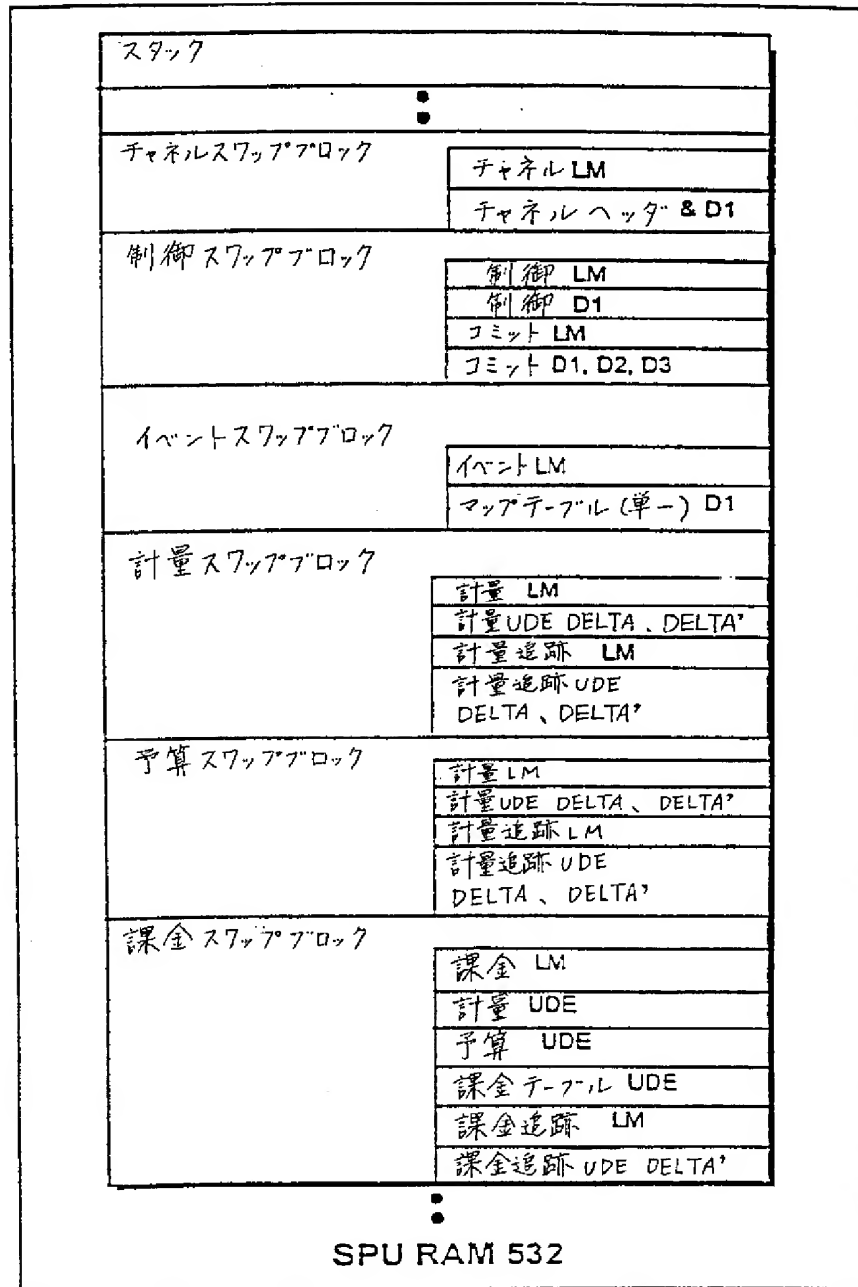 スタック
チャネルスワップブロック
チャネル LM
チャネルヘッダ & D1
制御スワップブロック
制御 LM
制御 D1
コミット LM
コミット D1, D2, D3
イベントスワップブロック
イベント LM
マップテーブル (単一) D1
計量スワップブロック
計量 LM
計量UDE DELTA、DELTA'
計量追跡 LM
計量追跡UDE
DELTA、DELTA'
予算スワップブロック
計量LM
計量UDE DELTA、DELTA'
計量追跡LM
計量追跡UDE
DELTA、DELTA'
課金スワップブロック
課金 LM
計量 UDE
予算 UDE
課金テーブル UDE
課金追跡 LM
課金追跡UDE DELTA'
SPU RAM 532